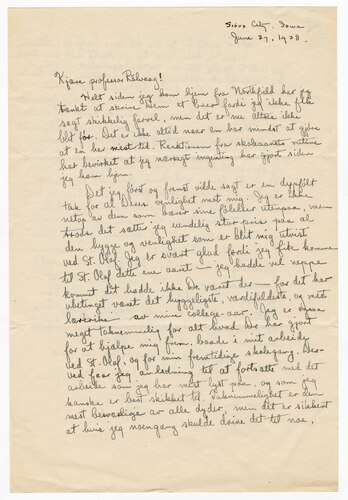 Sioux City, Iowa
June 27, 1928.
Kjære professor Rölvaag!
Helt siden jeg kom hjem fra Northfield har jeg
tænkt at skrive Dem et brev fordi jeg ikke fik
sagt skikkelig farvel, men det er nu altsaa ikke
blit før. Det er ikke altid naar en har mindst at gjøre
at en har mest tid. Reaktionen fra skoleaarets rutine
har bevirket at jeg næsten ingenting har gjort siden
jeg kom hjem.
Det jeg først og fremst vilde sagt er en dypfølt
tak for al Deres venlighet mot mig. Jeg er ikke
netop av dem som bærer sine følelser utenpaa, men
trods det sætter jeg uendelig stor pris paa al
den hygge og venlighet som er blit mig utvist
ved St. Olaf. Jeg er svært glad fordi jeg fik komme
til St. Olaf dette ene aaret — jeg hadde vel neppe
kommet dit hadde ikke De været der — for det har
ubetinget været det hyggeligste, værdifuldeste, og mest
lærerike av mine college-aar. Jeg er ogsaa
meget taknemmelig for alt hvad De har gjort
for at hjælpe mig frem, baade i mit arbeide
ved St. Olaf og for min fremtidige skolegang. Der-
ved faar jeg anledning til at fortsætte med det
arbeide som jeg har mest lyst paa, og som jeg
kanske er best skikket til. Taknemmelighet er den
mest besværlige av alle dyder, men det er sikkert
at hvis jeg noengang skulde drive det til noe,